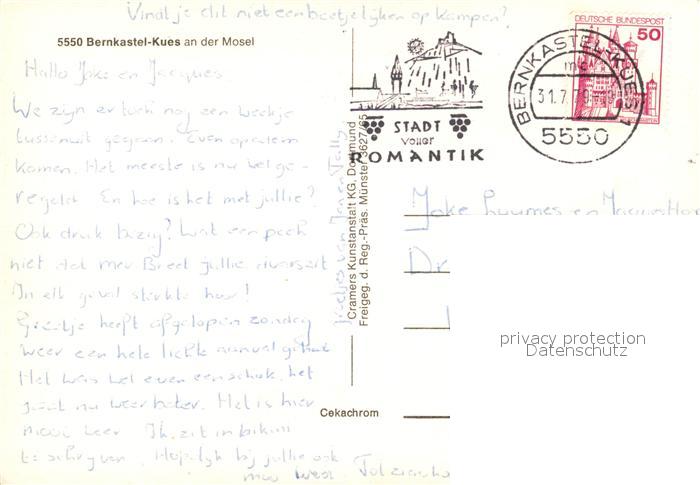 Vind je dit niet een beetje lijken op Kampen?
5550 Bernkastel-Kues an der Mosel
Hallo Joke en Jacques.
We zijn er toch nog een weekje
tussenuit gegaan. Even op adem
komen. Het meeste is nu wel ge-
regeld. En hoe is het met jullie?
Ook druk bezig? Wat een pech
niet met
In elk geval sterkte hoor!
Greetje heeft afgelopen zondag
weer een hele lichte aanval gehad
Het was wel even een schok, het
gaat nu weer beter. Het is hier
mooi weer. Ik zit in bikini
te schrijven. Hopelijk bij jullie ook
mooi weer. Tot ziens
Groetjes van
Cramers Kunstanstalt KG, Dortmund
Freigeg. d. Reg.-Präs. Münster 3627/65
Cekachrom
STADT
voller
ROMANTIK
BERNKASTEL-KUES 1
mc
31.7.79
5550
DEUTSCHE BUNDESPOST
50
Joke en Jacques
Dr
privacy protection
Datenschutz